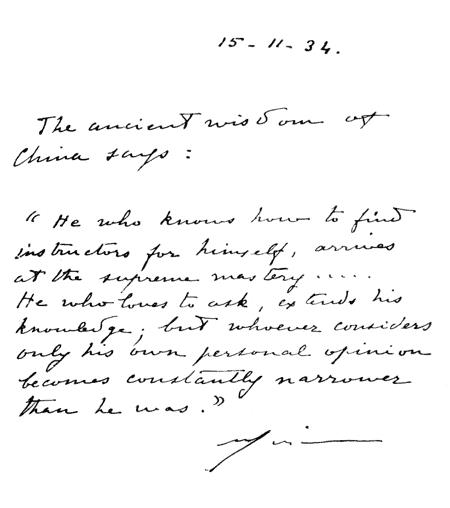 15-11-34.
The ancient wisdom of
China says:
"He who knows how to find
instructors for himself, arrives
at the supreme mastery.....
He who loves to ask, extends his
knowledge; but whoever considers
only his own personal opinion
becomes constantly narrower
than he was."